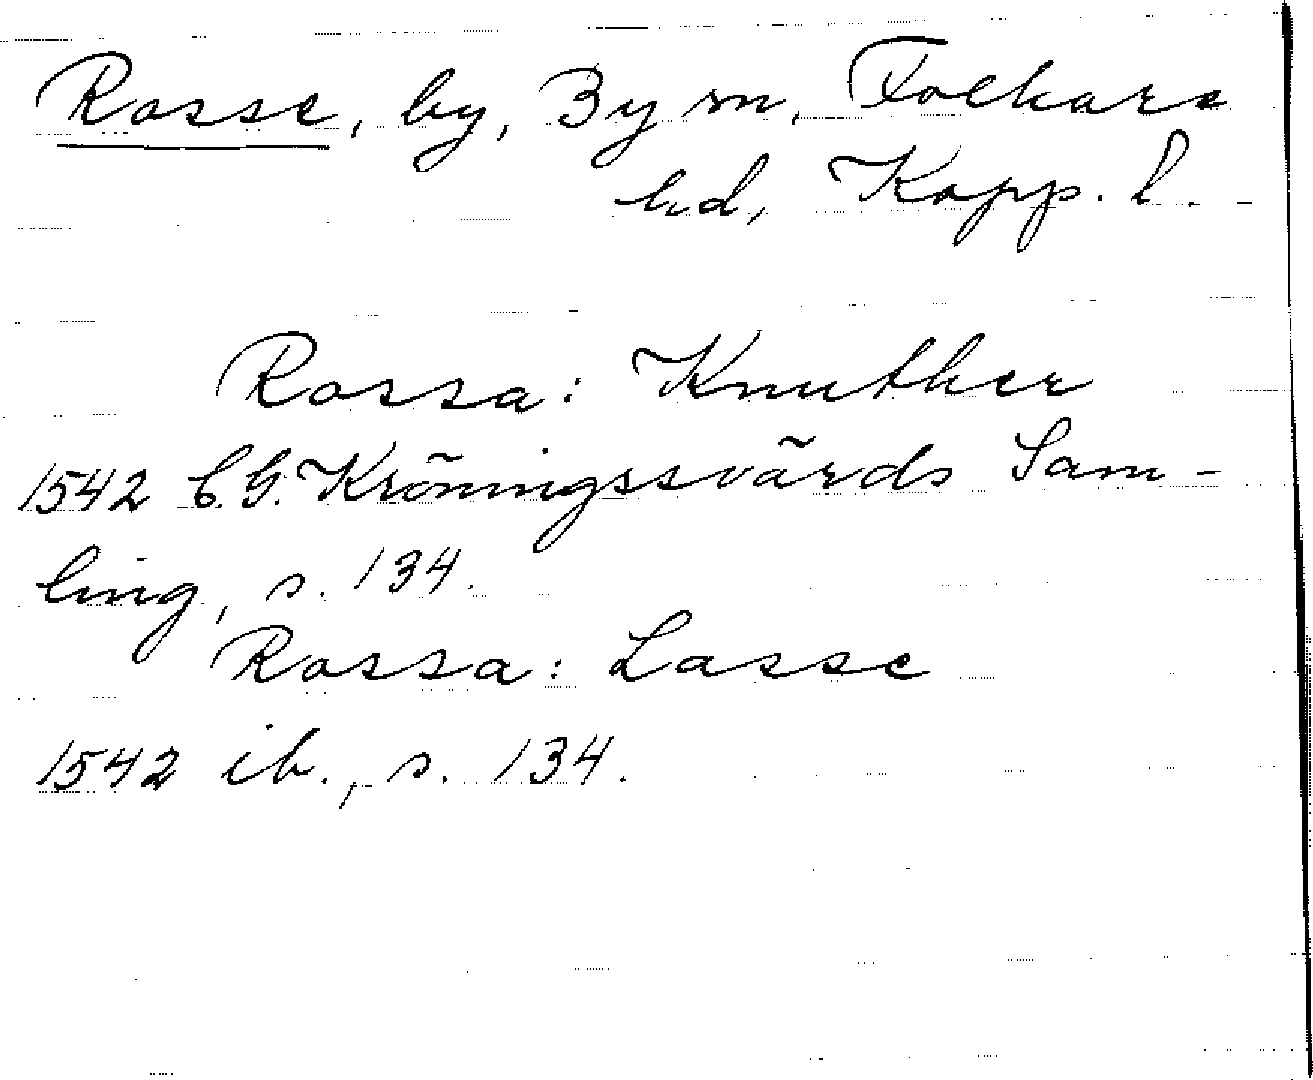 Rosse, by, By sn, Folkare
hd, Kopp. l.
Rossa: Knuther
1542 C.G. Kröningssvärds Sam-
ling, s. 134.
Rossa: Lasse
1542 ib., s. 134.